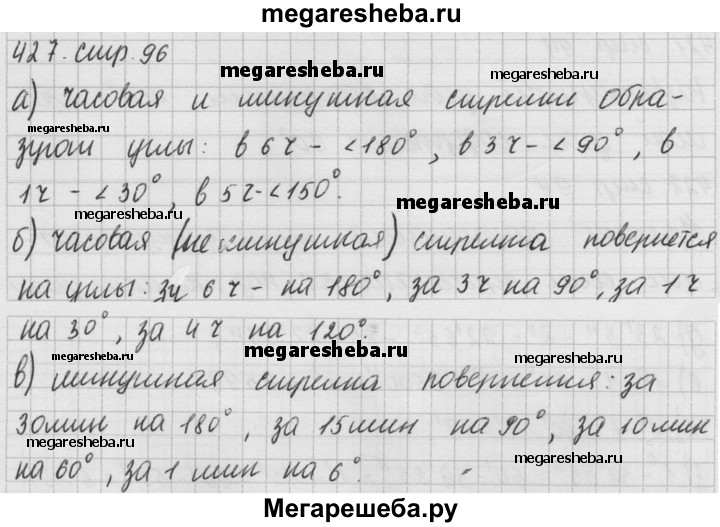 megaresheba.ru
427. стр. 96
megaresheba.ru
megaresheba.ru
а) часовая и минутная стрелки обра-
megaresheba.ru
зуют углы: в 6 ч - <180°, в 3 ч - <90°, в
1 ч - <30°, в 5 ч - <150°.
megaresheba.ru
megaresheba.ru
б) часовая (не минутная) стрелка повернется
на углы: за 6 ч - на 180°, за 3 ч на 90°, за 1 ч
на 30°, за 4 ч на 120°.
megaresheba.ru
megaresheba.ru
megaresheba.ru
в) минутная стрелка повернется: за
30 мин на 180°, за 15 мин на 90°, за 10 мин
megaresheba.ru
megaresheba.ru
на 60°, за 1 мин на 6°.
Мегарешеба.ру